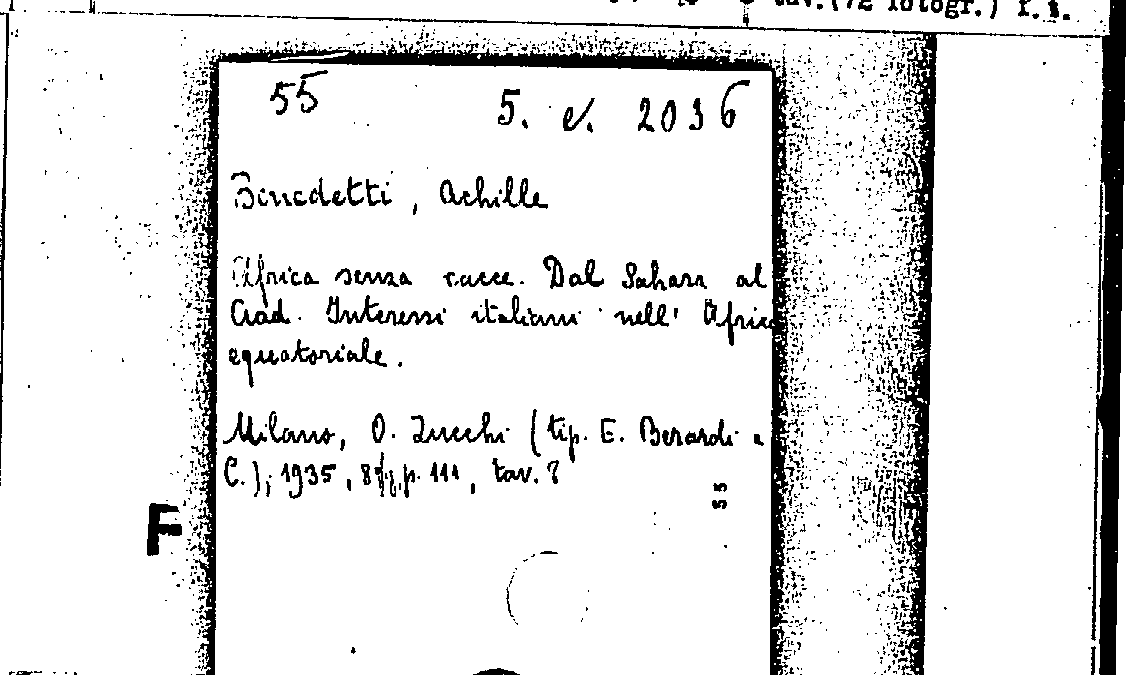 tav.(72 fotogr.) f. s.
55 5. v. 2036
Benedetti, Achille
Africa senza racce. Dal Sahara al
Ciad. Interessi italiani nell' Africa
equatoriale.
Milano, O. Zucchi (tip. E. Berardi e
C.), 1935, 8º, p. 111, tav. 8
55
F